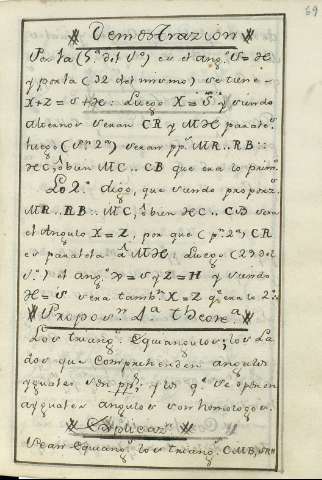 69
Demostrazion
Por la (5.ª del 1.º) es el ang.º S=H
y por la (32 del mismo) se tiene
X+Z=S+H: Luego X=S y siendo
alternos seran CR y MH paralelas
luego (1.ª 2.ª) seran pp.s MR..RB::
HC, ô bien MC..CB que era lo prim.º
Lo 2.º digo, que siendo propor.s
MR..RB::MC, ô bien HC..CB sera
el Angulo X=Z, por que (p.r 2.ª) CR
es paralela â MH: Luego (29 del
1.º) el ang.º =S y Z=H y siendo
H=S sera tamb.n X=Z q.e era lo 2.º
Propos.n 4.ª Theore.ª
Los triang.s Equiangulos; los La
dos que comprehenden angulos
yguales son pp.s y los q.e se oponen
a yguales angulos son homologos.
Explicaz.n
Sean Equiang.s los triang.s CMB,